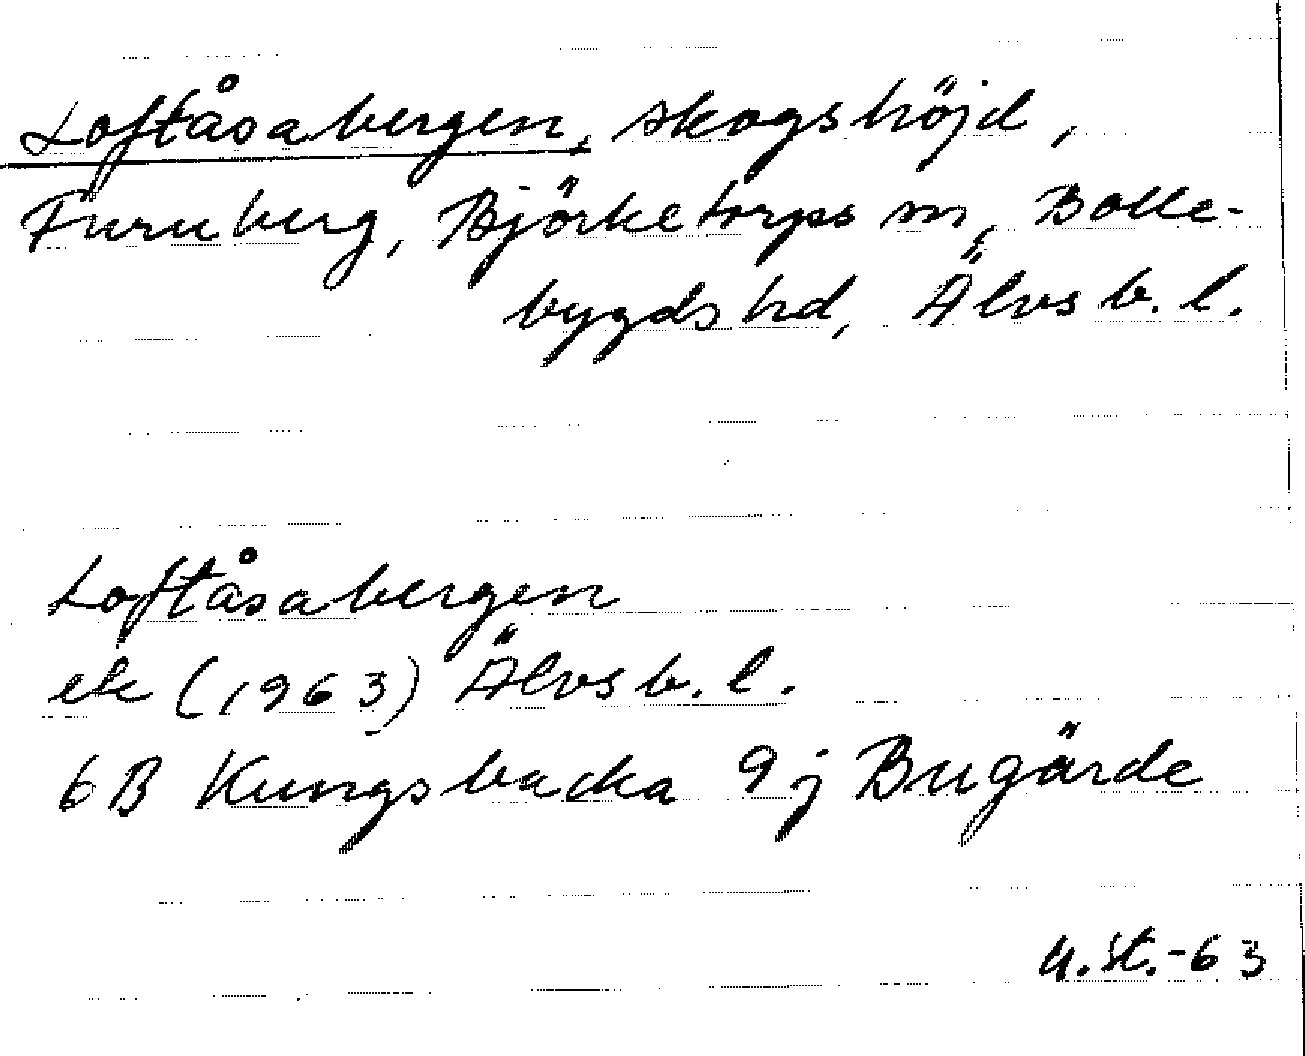 Loftåsabergen, skogshöjd,
Furuberg, Björketorps sn, Bolle-
bygds hd, Älvsb. l.
Loftåsabergen
ek (1963) Älvsb. l.
6B Kungsbacka 9j Bugärde
U. St.-63